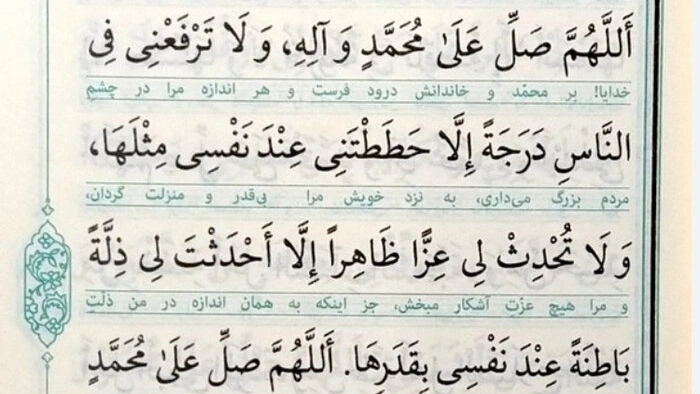 أَللَّهُمَّ صَلِّ عَلَىٰ مُحَمَّدٍ وَ آلِهِ، وَ لَا تَرْفَعْنِی فِی
خدایا! بر محمّد و خاندانش درود فرست و هر اندازه مرا در چشمِ
النَّاسِ دَرَجَةً إِلَّا حَطَطْتَنِی عِنْدَ نَفْسِی مِثْلَهَا،
مردم بزرگ می‌داری، به نزد خویش مرا بی‌قدر و منزلت گردان،
وَ لَا تُحْدِثْ لِی عِزًّا ظَاهِراً إِلَّا أَحْدَثْتَ لِی ذِلَّةً
و مرا هیچ عزّتِ آشکار مبخش، جز اینکه به همان اندازه در من ذلتِ
بَاطِنَةً عِنْدَ نَفْسِی بِقَدَرِهَا. أَللَّهُمَّ صَلِّ عَلَىٰ مُحَمَّدٍ